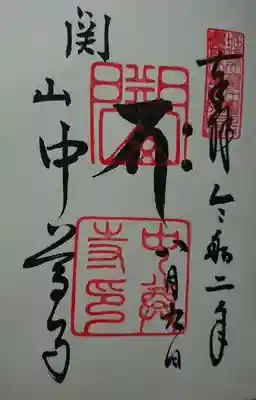 奉拝 令和二年
八月九日
関山中尊寺
關山
中尊寺印